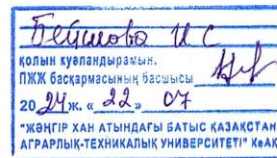 Бейшова И С
қолын куәландырамын.
ПЖЖ басқармасының басшысы
20 24 ж. « 22 » 07
"ЖӘҢГІР ХАН АТЫНДАҒЫ БАТЫС ҚАЗАҚСТАН
АГРАРЛЫҚ-ТЕХНИКАЛЫҚ УНИВЕРСИТЕТІ" КеАҚ